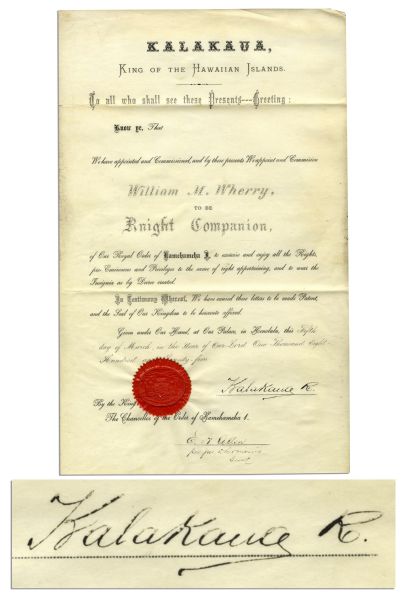 KALAKAUA,
KING OF THE HAWAIIAN ISLANDS.
To all who shall see these Presents---Greeting:
Know ye, That
We have appointed and Commissioned, and by these presents We appoint and Commission
William M. Wherry,
TO BE
Knight Companion,
of Our Royal Order of Kamehameha I. to exercise and enjoy all the Rights,
Pre-Eminences and Privileges to the same of right appertaining, and to wear the
Insignia as by Decree created.
In Testimony Whereof, We have caused these letters to be made Patent,
and the Seal of Our Kingdom to be hereunto affixed.
Given under Our Hand, at Our Palace, in Honolulu, this Fifth
day of March, in the Year of Our Lord One Thousand Eight
Hundred
five
Kalakaua R.
By the King
The Chancellor of the Order of Kamehameha I.
Kalakaua R.